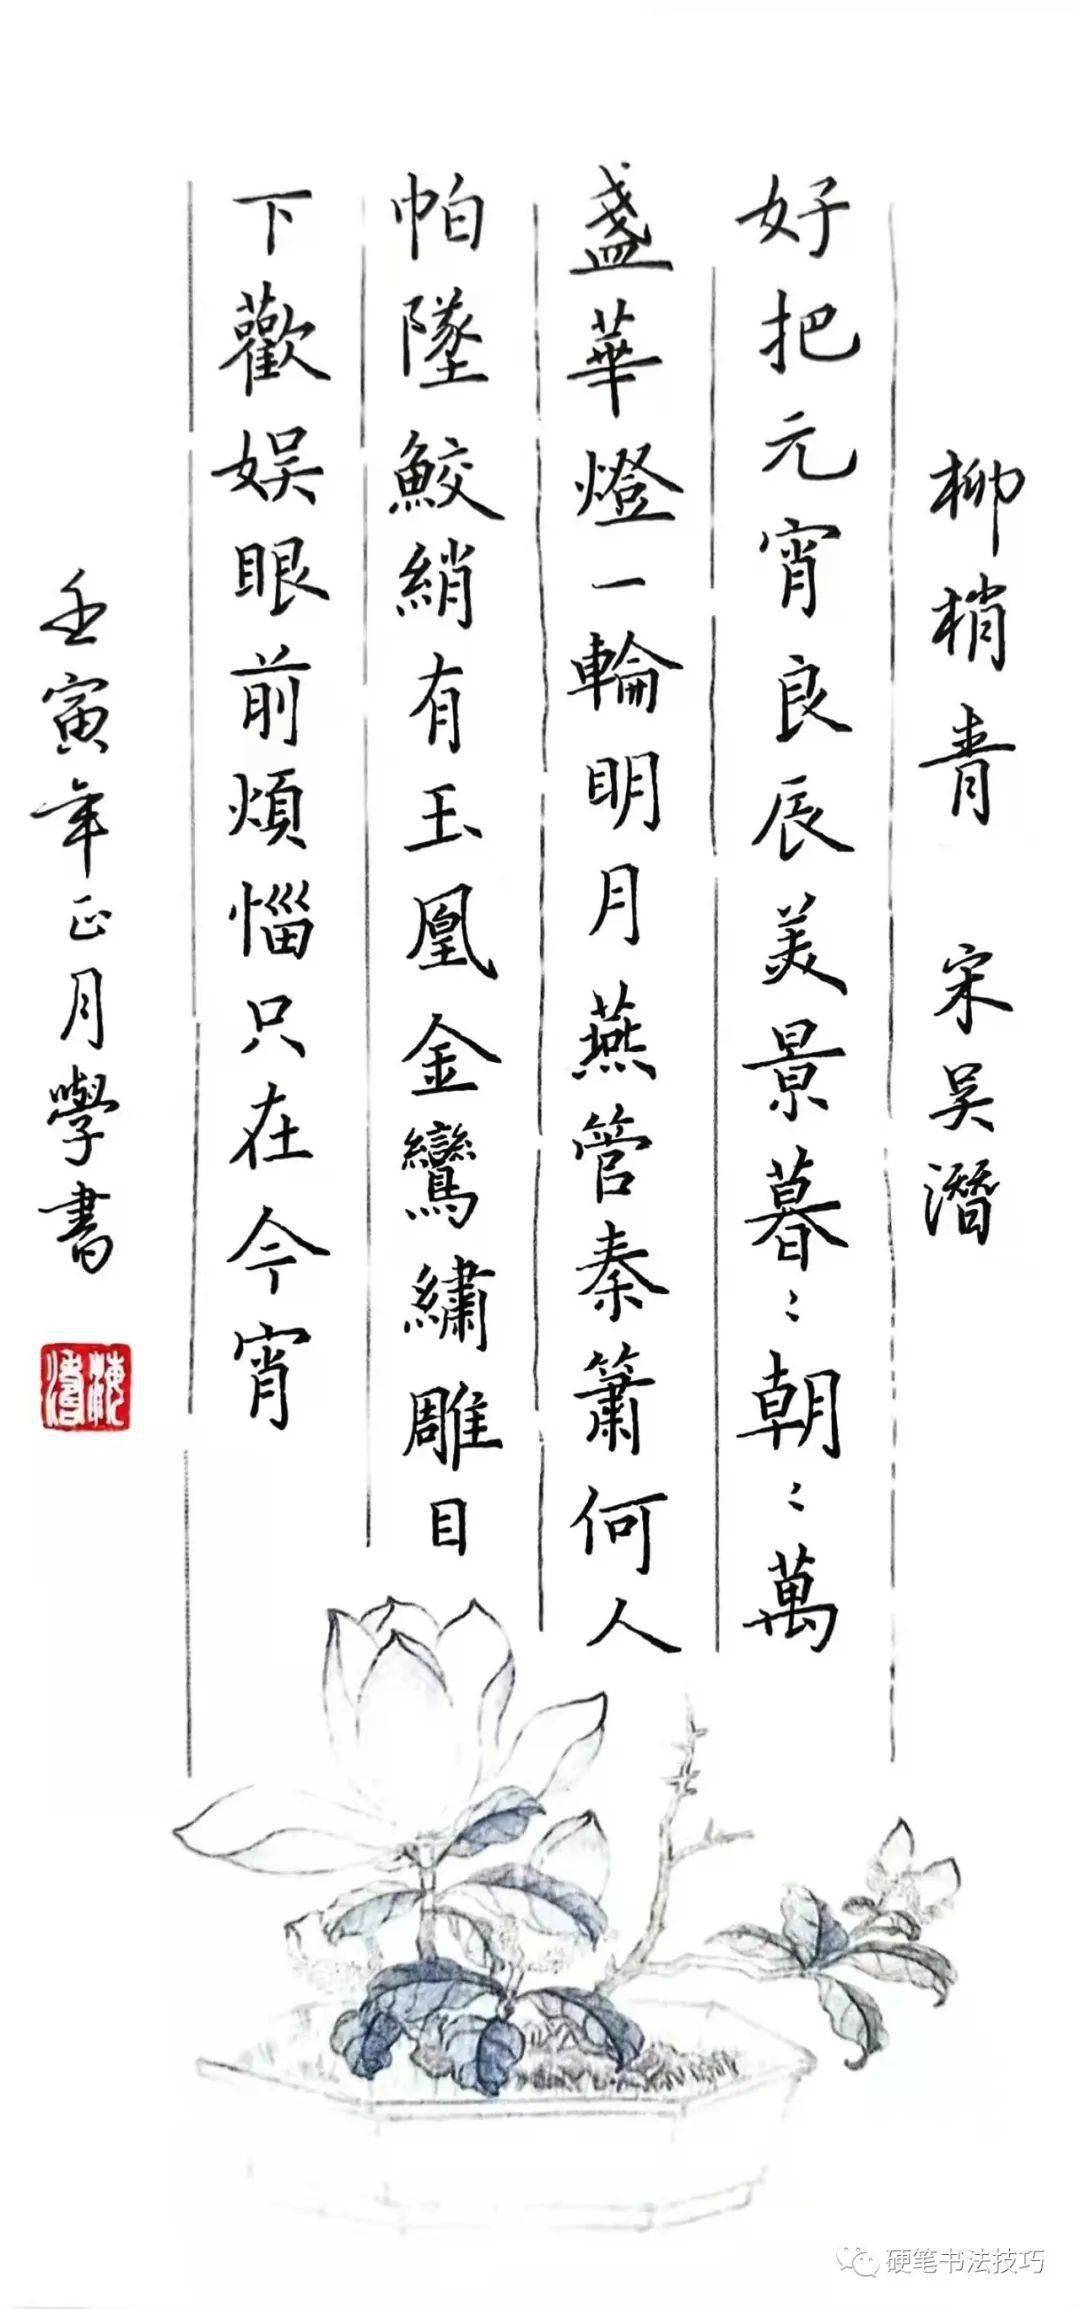 柳梢青　宋吴潛
好把元宵良辰美景暮〻朝〻萬
盞華燈一輪明月燕管秦簫何人
帕墜鮫綃有玉凰金鸞繡雕目
下歡娱眼前煩惱只在今宵
壬寅年正月學書
硬笔书法技巧